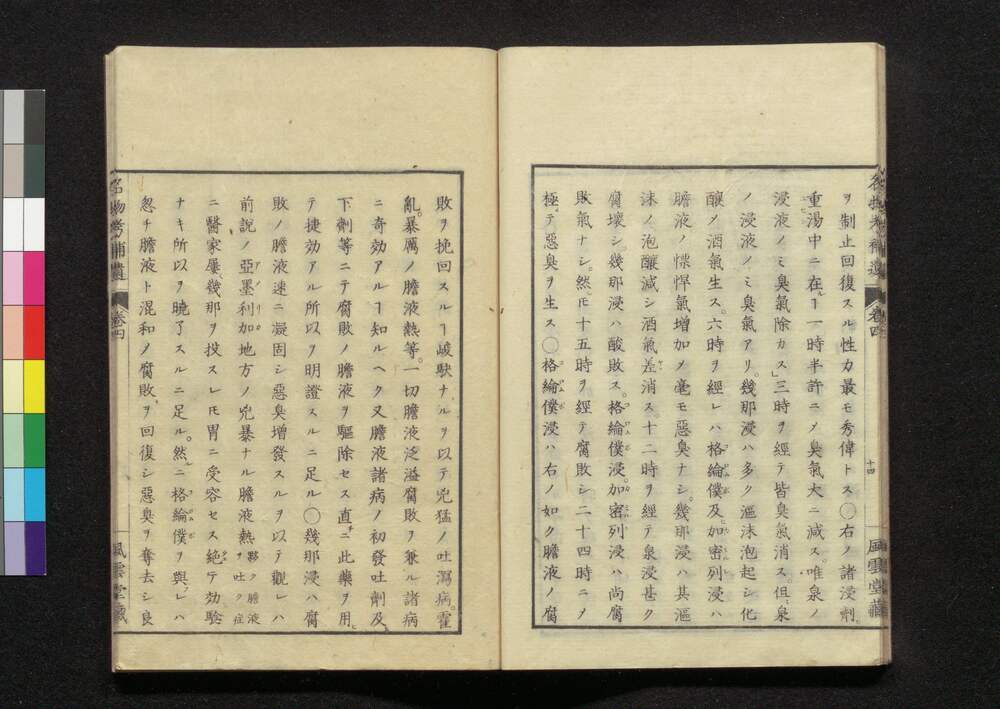 ヲ制止回復スル性力最モ秀偉トス〇右ノ諸浸劑
重湯中ニ在ルヿ一時半許ニメ臭氣大ニ減ス唯泉ノ
浸液ノミ臭氣除カス三時ヲ經テ皆臭氣消ス但泉
ノ浸液ノミ臭氣アリ幾那浸ハ多ク漚沫泡起シ化
釀ノ酒氣生ス六時ヲ經レハ格綸僕及加密列浸ハ
膽液ノ慓悍氣增加メ毫モ惡臭ナシ幾那浸ハ其漚
沫ノ泡釀減シ酒氣差消ス十二時ヲ經テ泉浸甚ク
腐壞シ幾那浸ハ酸敗ス格綸僕浸加密列浸ハ尚腐
敗氣ナシ然㪳十五時ヲ經テ腐敗シ二十四時ニメ
極テ惡臭ヲ生ス〇格綸僕浸ハ右ノ如ク膽液ノ腐
敗ヲ挽回スルヿ峻駃ナルヲ以テ兇猛ノ吐瀉病霍
亂暴厲ノ膽液熱等一切膽液泛溢腐敗ヲ兼ル諸病
ニ奇効アルヿ知ルヘク又膽液諸病ノ初發吐劑及
下劑等ニテ腐敗ノ膽液ヲ驅除セス直チニ此藥ヲ用
テ捷効アル所以ヲ明證スルニ足ル〇幾那浸ハ腐
敗ノ膽液速ニ凝固シ惡臭增發スルヲ以テ觀レハ
前說ノ亞墨利加地方ノ兇暴ナル膽液熱夥ク膽液ヲ吐ク症
ニ醫家屢幾那ヲ投スレ㪳胃ニ受容セス絕テ効驗
ナキ所以ヲ曉了スルニ足ル然ルニ格綸僕ヲ與フレハ
忽チ膽液ト混和メ腐敗ヲ回復シ惡臭ヲ奪去シ良
名物考補遺 卷四 風雲堂藏
卷四 十四 風雲堂藏